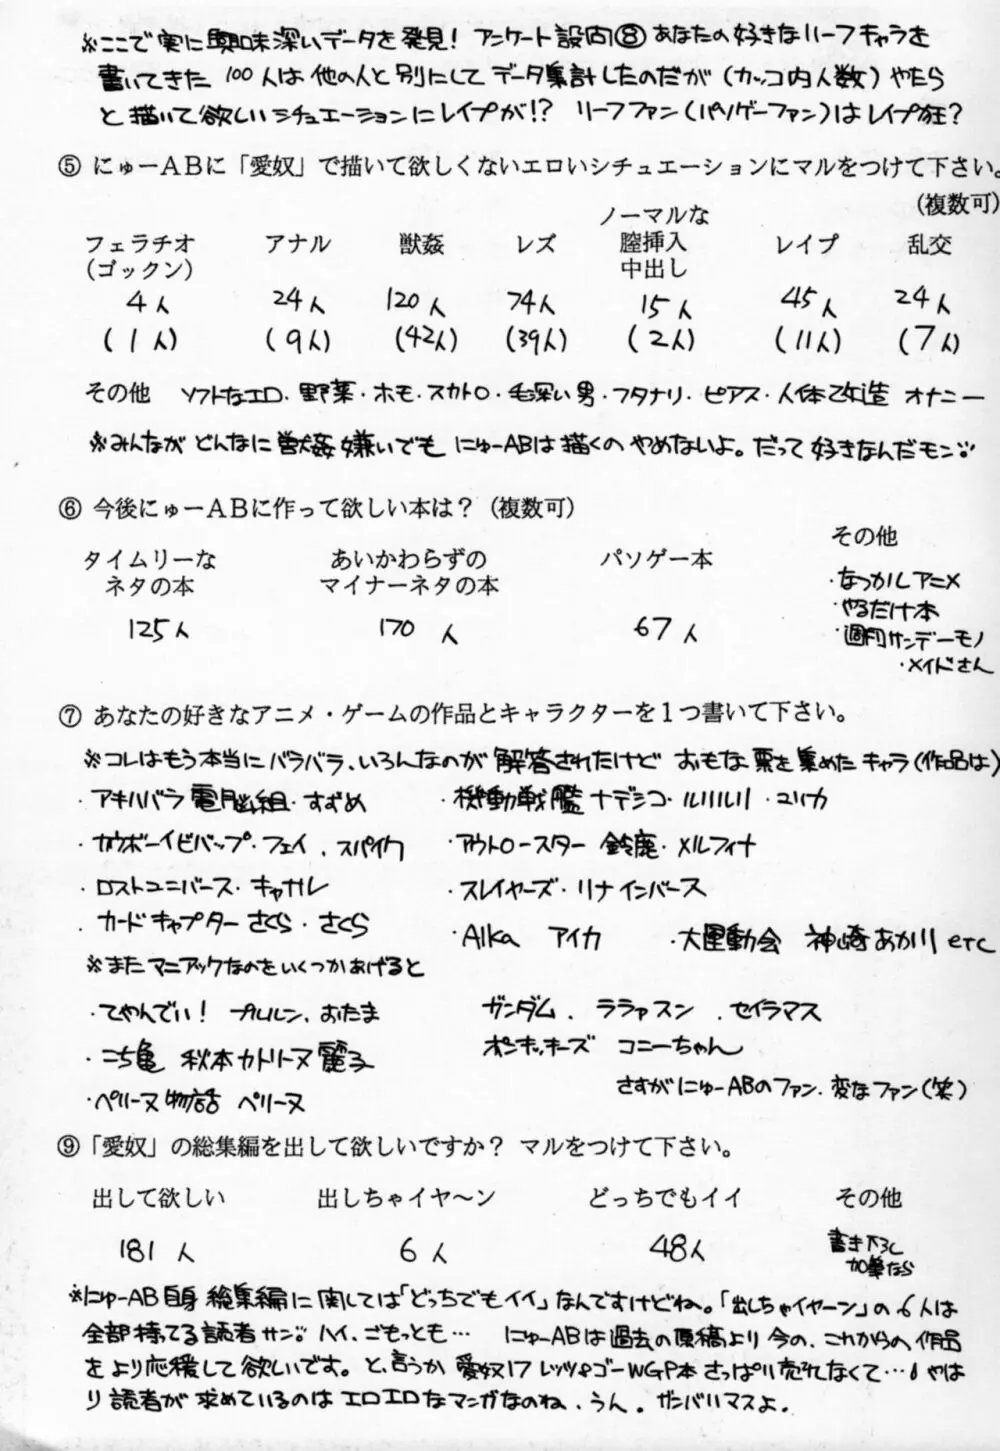 ※ここで実に興味深いデータを発見! アンケート設問⑧あなたの好きなリーフキャラを
書いてきた 100人は他の人と別にしてデータ集計したのだが(カッコ内人数)やたら
と描いて欲しいシチュエーションにレイプが!? リーフファン(パソゲーファン)はレイプ狂?
⑤ にゅーABに「愛奴」で描いて欲しくないエロいシチュエーションにマルをつけて下さい。
(複数可)
フェラチオ(ゴックン) アナル 獣姦 レズ ノーマルな膣挿入中出し レイプ 乱交
4人 24人 120人 74人 15人 45人 24人
(1人) (9人) (42人) (39人) (2人) (11人) (7人)
その他 ソフトなエロ・野薬・ホモ・スカトロ・毛深い男・フタナリ・ピアス・人体改造 オナニー
※みんながどんなに獣姦嫌いでも にゅーABは描くのやめないよ。だって好きなんだモン
⑥ 今後にゅーABに作って欲しい本は?(複数可)
タイムリーなネタの本 あいかわらずのマイナーネタの本 パソゲー本 その他
125人 170人 67人
・なつかしアニメ
・やるだけ本
・週刊サンデーモノ
・メイドさん
⑦ あなたの好きなアニメ・ゲームの作品とキャラクターを1つ書いて下さい。
※コレはもう本当にバラバラ、いろんなのが解答されたけど おもな票を集めたキャラ(作品は)
・アキハバラ電脳組・すずめ ・機動戦艦ナデシコ・ルリルリ・ユリカ
・カウボーイビバップ・フェイ、スパイク ・アウトロースター 鈴鹿・メルフィナ
・ロストユニバース・キャナル ・スレイヤーズ・リナインバース
・カードキャプターさくら・さくら ・AIka アイカ ・大運動会 神崎あかり etc
※またマニアックなのをいくつかあげると
・てやんでい! プルルン、おたま ガンダム、ララァスン、セイラマス
・こち亀 秋本カトリーヌ麗子 ポンキッキーズ コニーちゃん
・ペリーヌ物語 ペリーヌ さすがにゅーABのファン、変なファン(笑)
⑨ 「愛奴」の総集編を出して欲しいですか? マルをつけて下さい。
出して欲しい 出しちゃイヤ〜ン どっちでもイイ その他
181人 6人 48人 書き下ろし加筆なら
※にゅーAB自身総集編に関しては「どっちでもイイ」なんですけどね。「出しちゃイヤーン」の6人は
全部持てる読者サン。ハイ、ごもっとも… にゅーABは過去の原稿より今の、これからの作品
をより応援して欲しいです。と、言うか 愛奴17 レッツ&ゴーWGP本さっぱり売れなくて…。やは
り読者が求めているのはエロエロなマンガなのね、うん。ガンバリマスよ。